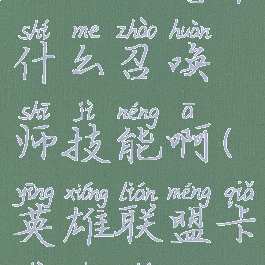 shí me zhào huàn
什么召唤
shī jì néng ā
师技能啊(
yīng xióng lián méng qiǎ
英雄联盟卡